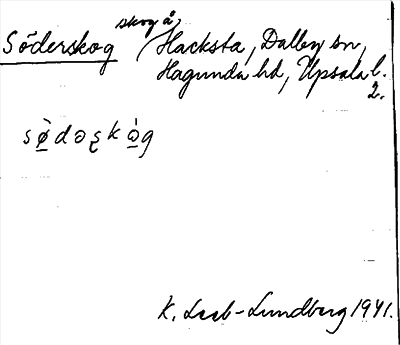 skog å,
Söderskog Hacksta, Dalby sn,
Hagunda hd, Upsala l.
2.
sø̀dəʂkò̱g
K. Leeb-Lundberg 1941.